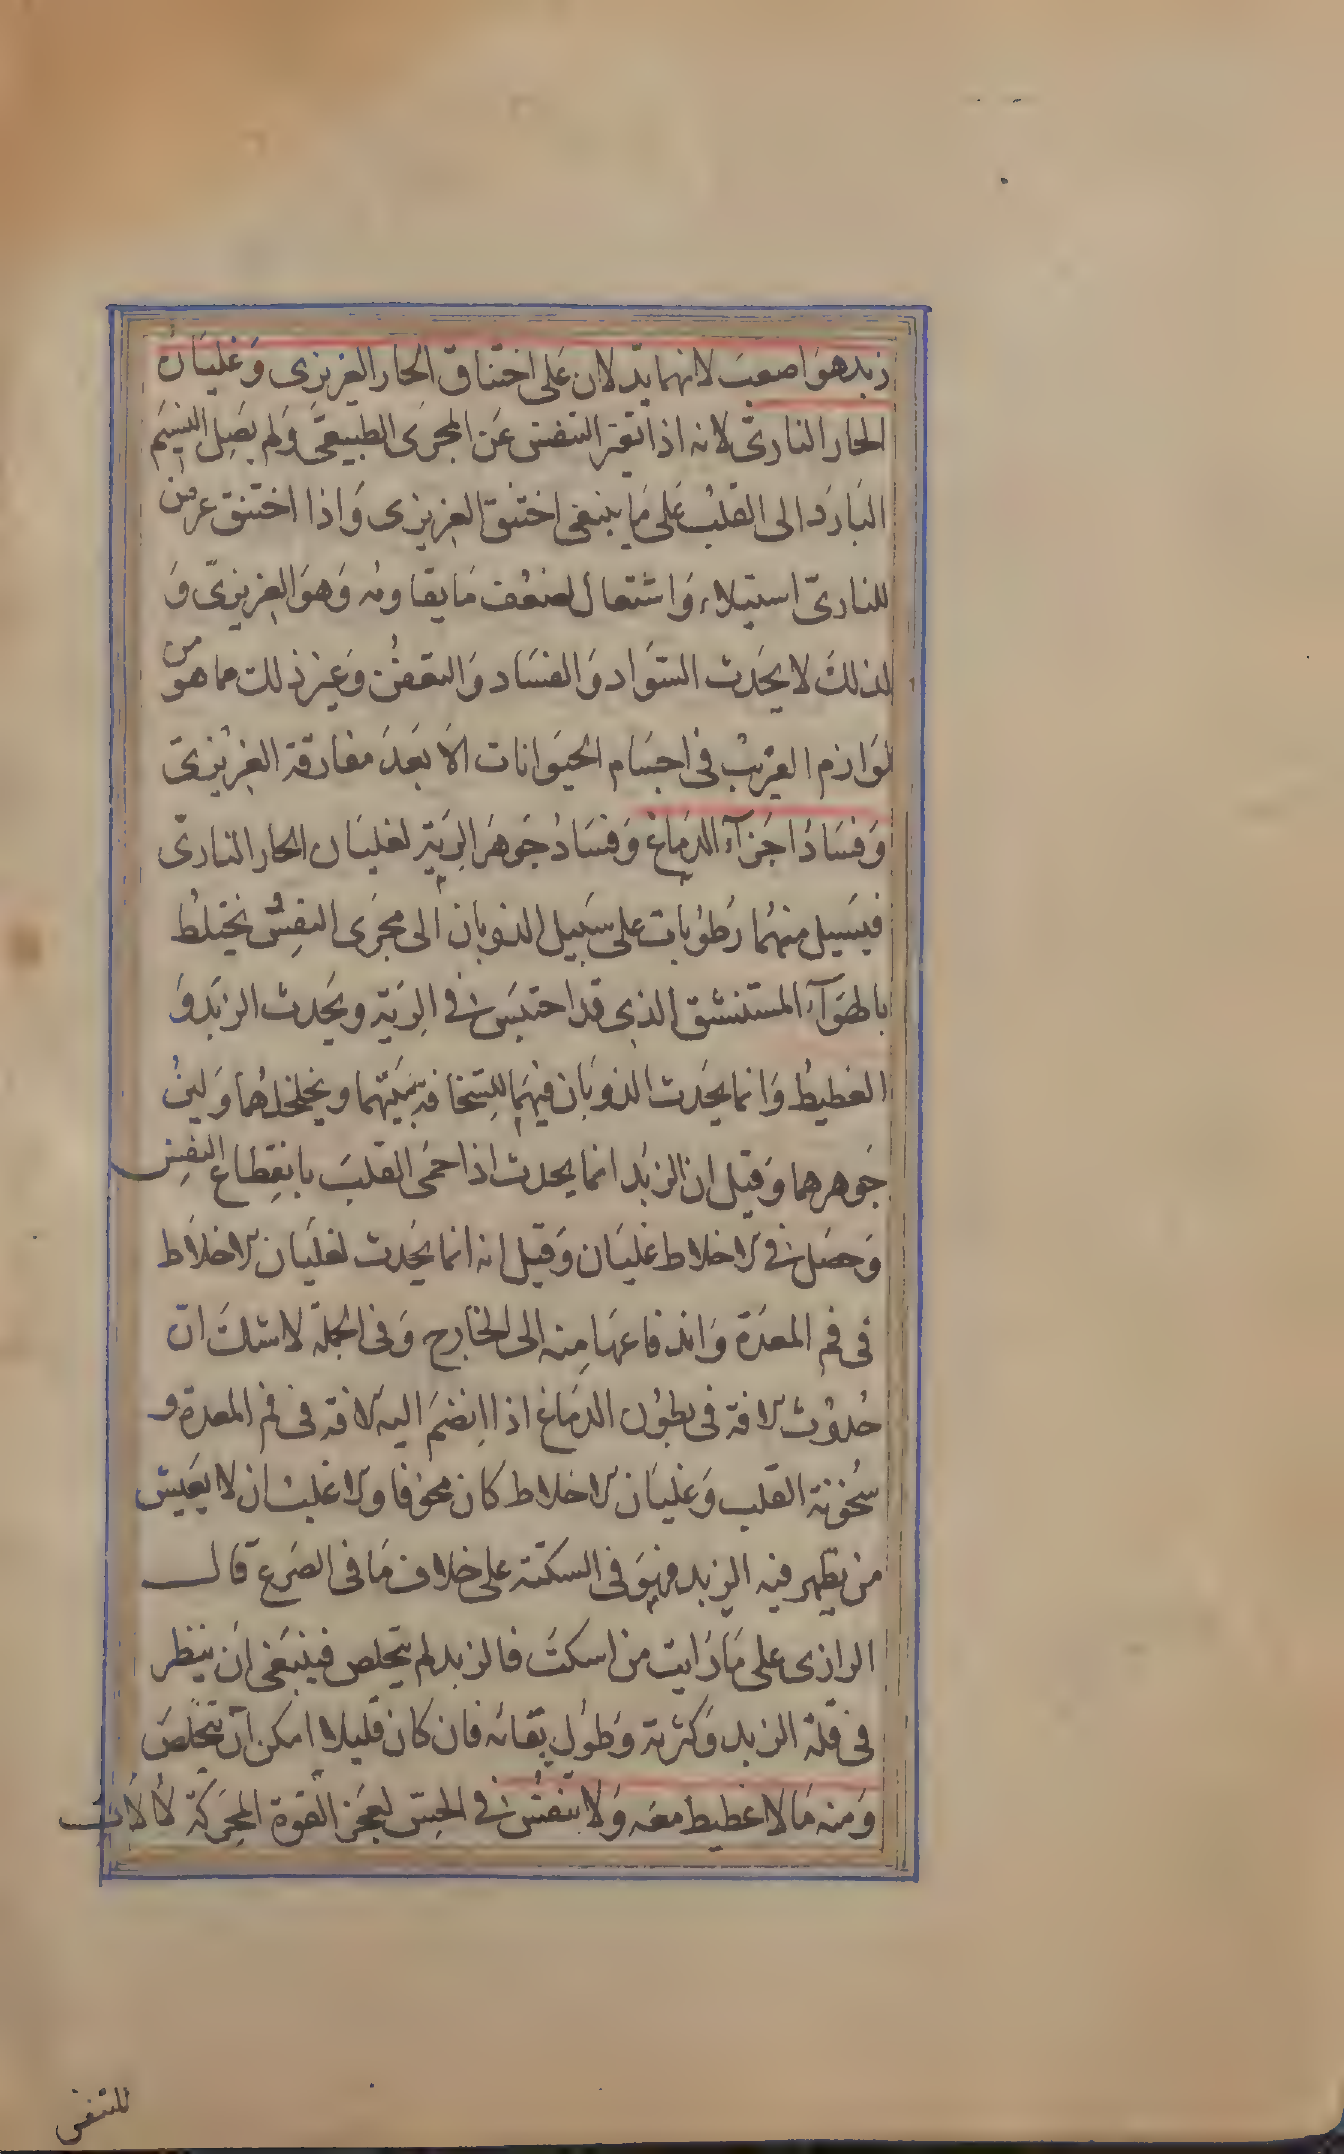 زبد هو اصعب لانهما يدلان على اختناق الحار الغريزى و غليان
الحار النارىّ لانه اذا تغير التنفس عن المجرى الطبيعىّ ولم يصل النسيم
البارد الى القلب على ما ينبغى اختنق الغريزى و اذا اختنق عرض
للنارىّ استيلاء و اشتعال لضعف ما يقاومه و هو الغريزىّ و
لذلك لا يحدث السواد و الفساد و التعفن و غير ذلك مما هو من
لوازم الغريب فى اجسام الحيوانات الا بعد مفارقة الغريزىّ
و فساد اجزآء الدماغ و فساد جوهر الرية لغليان الحار النارى
فيسيل منهما رطوبات على سبيل الذوبان الى مجرى النفس يختلط
بالهوآء المستنشق الذى قد احتبس فى الرية و يحدث الزبد و
الغطيط و انما يحدث الذوبان فيهما لسخافة بنيتهما و تخلخلهما و لين
جوهرهما و قيل ان الزبد انما يحدث اذا حمى القلب بانقطاع النفس
و حصل فى الاخلاط غليان و قيل انه انما يحدث لغليان الاخلاط
فى فم المعدة و اندفاعها منه الى الخارج و فى الجملة لا شك ان
حدوث الافة فى بطون الدماغ اذا انضم اليه الافة فى فم المعدة و
سخونة القلب و غليان الاخلاط كان مخوفا و الاغلب ان لا يعيش
من يظهر فيه الزبد فهو فى السكتة على خلاف ما فى الصرع قال
الرازى على ما رايت من اسكت فالزبد لم يتخلص فينبغى ان ينظر
فى قلة الزبد و كثرته و طول بقائه فان كان قليلا امكن ان يتخلص
و منه ما لا غطيط معه و لا تنفس فى الحس لعجز القوة المحركة لآلات
للتنفس